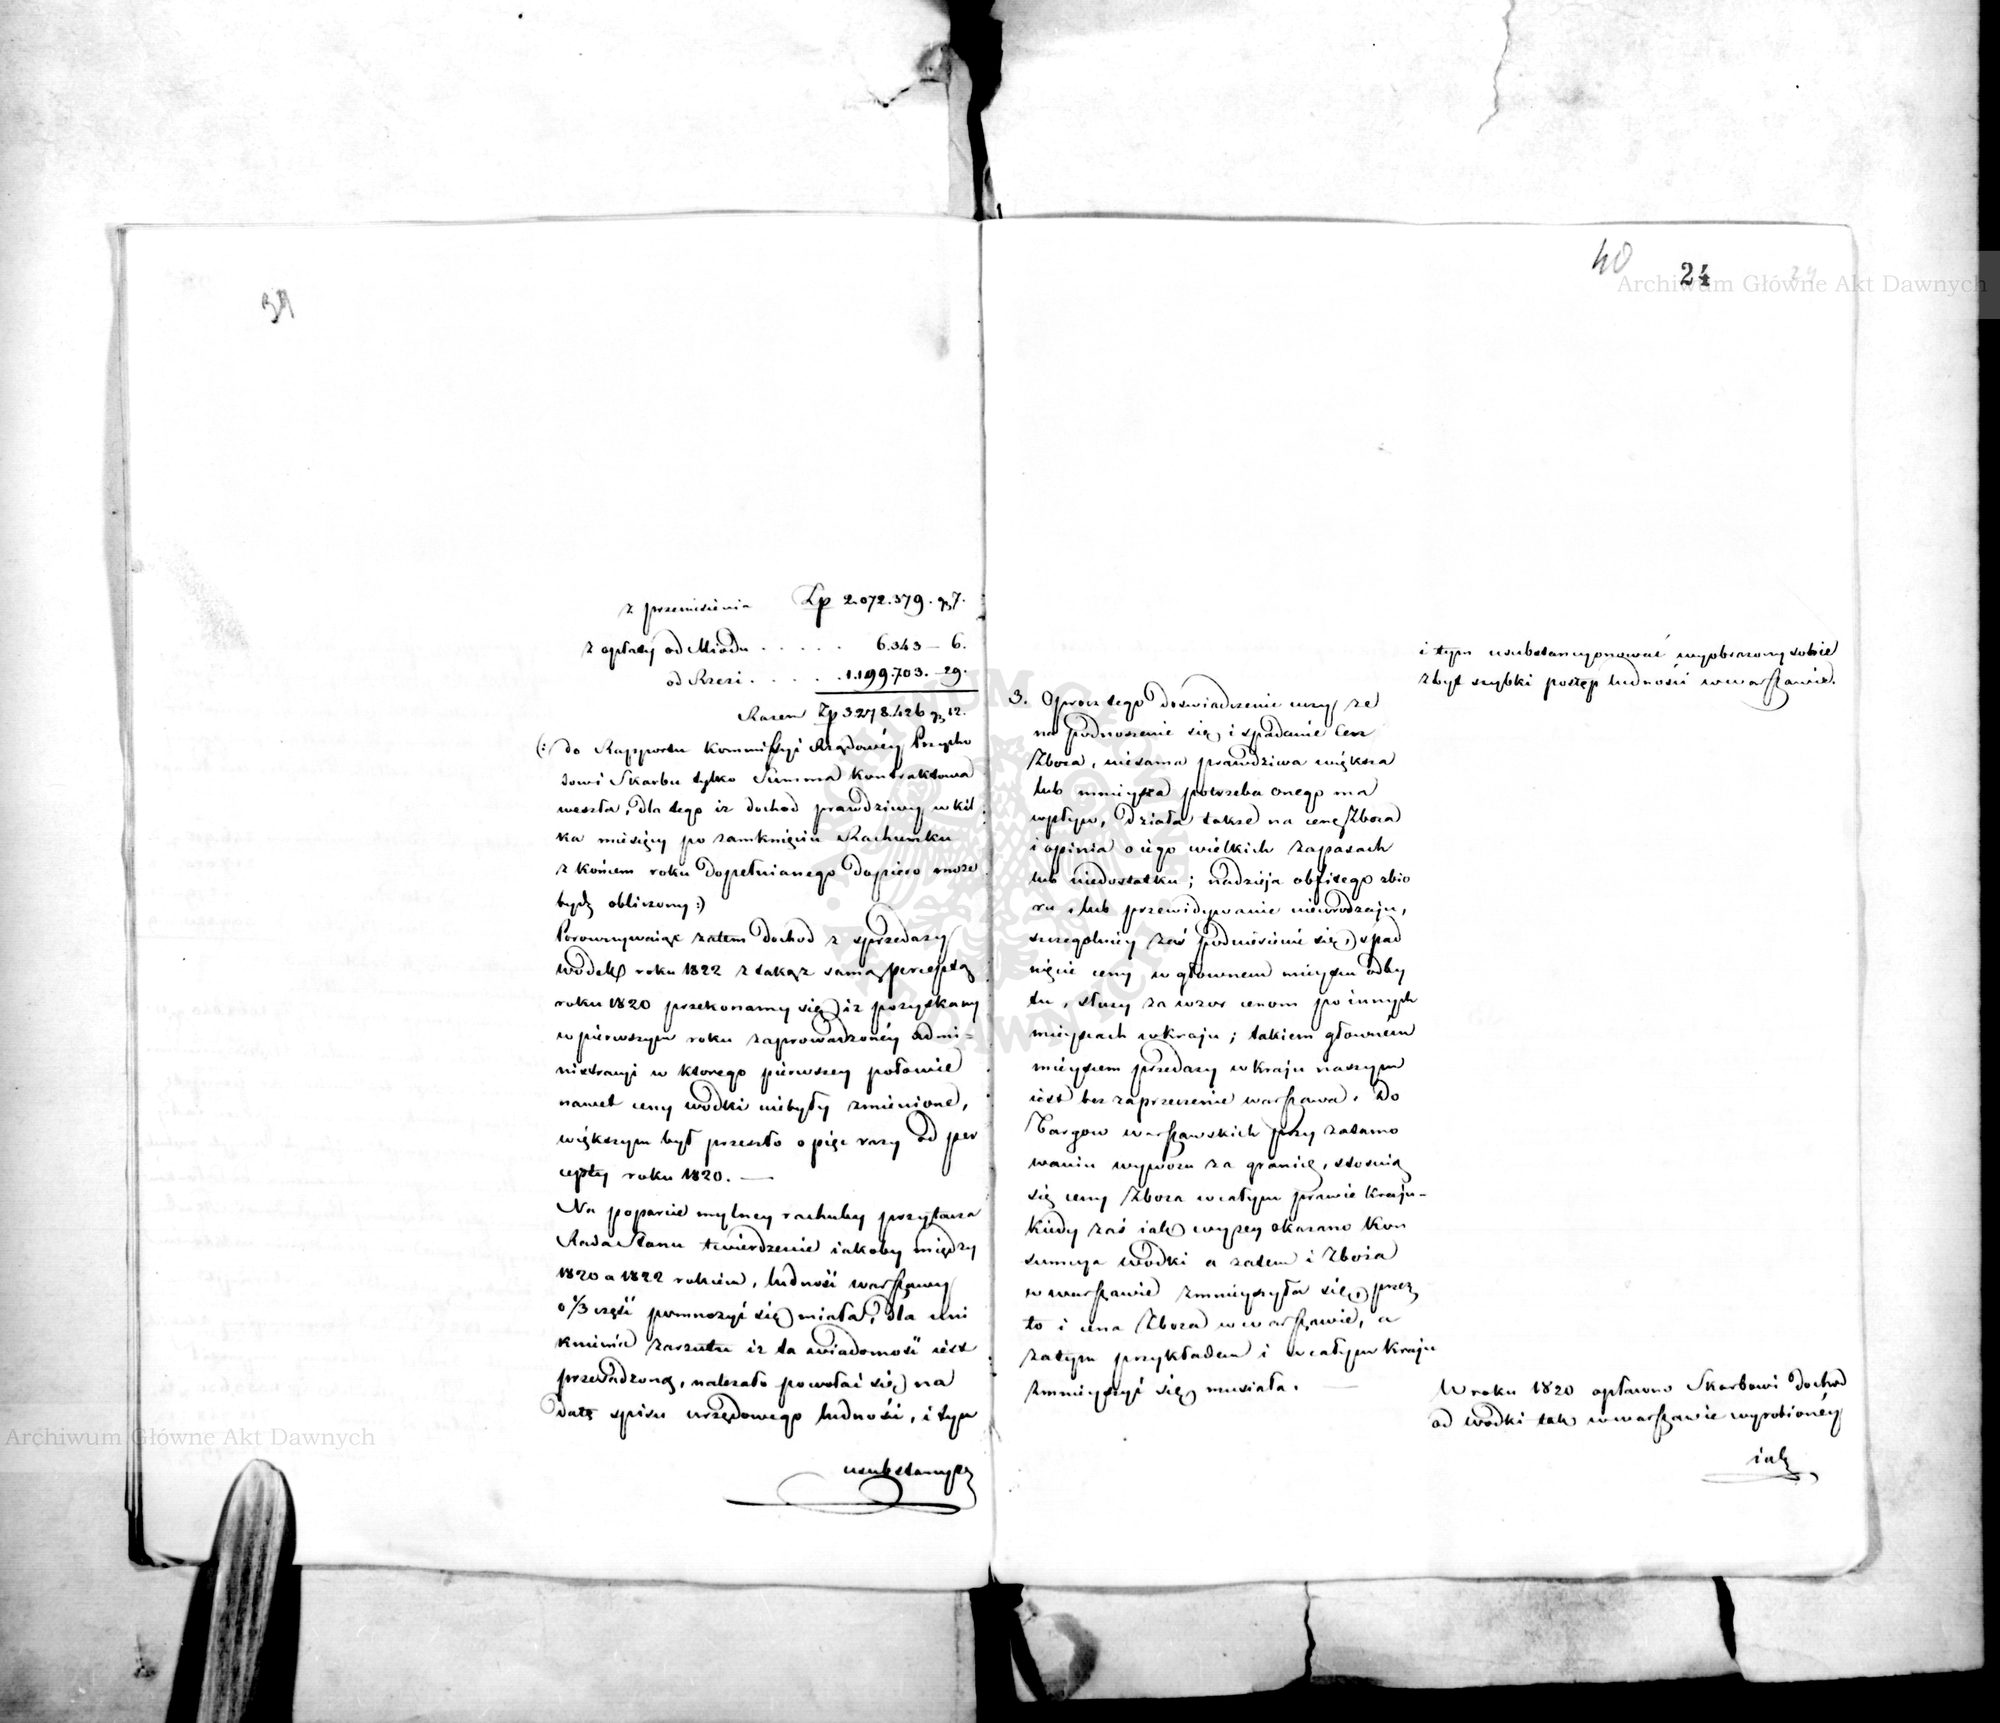 39
z przeniesienia Zp 2.072.379. gr 7.
z opłaty od Miodu . . . . . 6.343 — 6.
od Rzezi . . . . . 1.199.703. — 29.
Razem Zp 3.278.426 gr 12.
(: do Rapportu Kommissyi Rządowéy Przycho
dowi Skarbu tylko Summa kontraktowa
weszła, dla tego iż dochod prawdziwy w kil
ka miesięcy po zamknięciu Rachunku
z końcem roku dopełnianego dopiero może
bydź obliczony :)
Porownywaiąc zatem dochod z sprzedaży
wodek roku 1822 z takąż samą perceptą
roku 1820 przekonamy się iż pozyskany
w pierwszym roku zaprowadzonéy admi-
nistracyi w ktorego pierwszey połowie
nawet ceny wodki niebyły zmienione,
większym był przeszło o pięć razy od per
cepty roku 1820. —
Na poparcie mylney rachuby przytacza
Rada Stanu twierdzenie iakoby między
1820 a 1822 rokiem, ludność Warszawy
o 1/3 część pomnożyć się miała; dla uni
knienia zarzutu iż ta wiadomość iest
przesadzoną, należało powołać się na
datę spisu urzędowego ludności, i tym
usubstancyo
40
24
24
3. Oprocz tego doświadczenie uczy, że
na podnoszenie się i spadanie Cen
Zboża, niesama prawdziwa większa
lub mnieysza potrzeba onego ma
wpływ, działa także na cenę Zboża
i opinia o iego wielkich zapasach
lub niedostatku; nadzieja obfitego zbio
ru, lub przewidywanie nieurodzaju,
szczegolniey zaś podniesienie się, spad
nięcie ceny w głownem mieyscu odby
tu, służy za wzor cenom po innych
mieyscach w kraju; takiem głowném
mieyscem przedaży w kraju naszym
iest bez zaprzeczenia Warszawa. Do
Targow Warszawskich przy zatamo
waniu wywozu za granicę, stosuią
się ceny Zboża w całym prawie kraju-
kiedy zaś iak wyżey okazano kon
sumcya wodki a zatem i Zboża
w Warszawie zmnieyszyła się, przez
to i cena Zboża w Warszawie, a
za tym przykładem i w całym kraju
zmnieyszyć się musiała. —
i tym usubstancyonować wyobrażony sobie
zbyt szybki postęp ludności w Warszawie.
W roku 1820 opławno Skarbowi dochod
od wodki tak w Warszawie wyrobionéy
iak
Archiwum Główne Akt Dawnych
Archiwum Główne Akt Dawnych